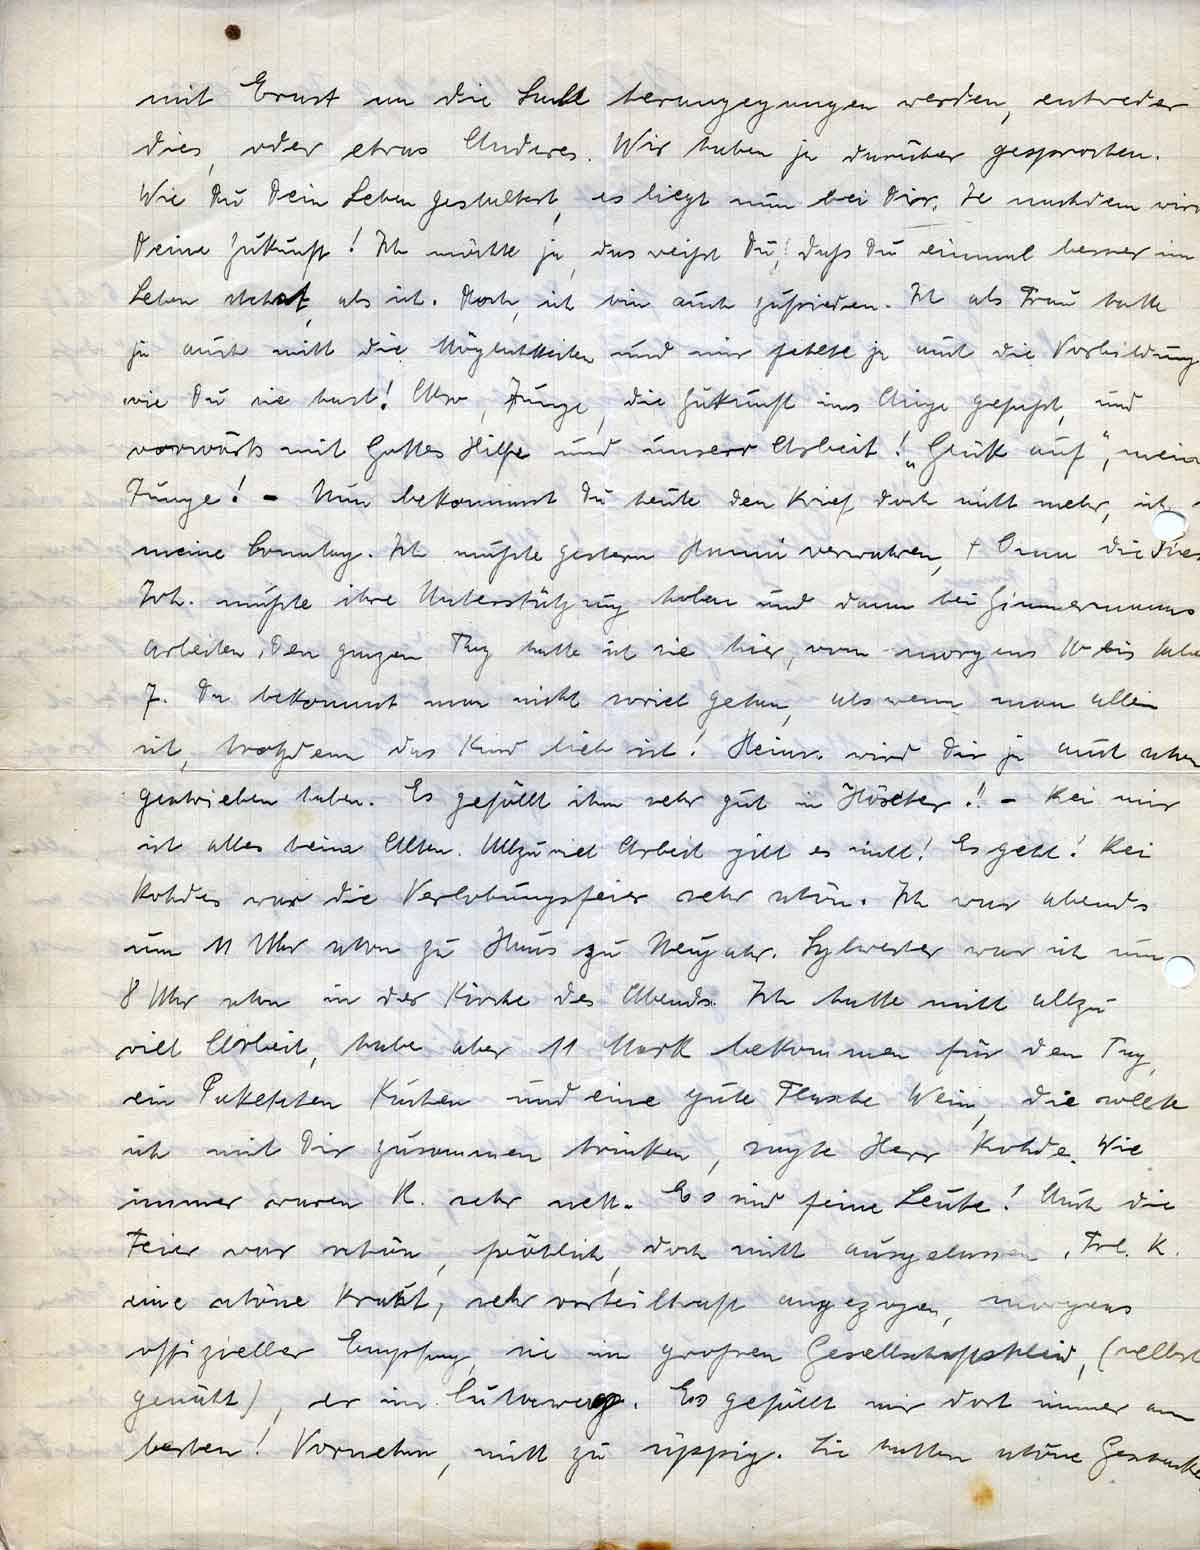 mit Ernst an die Sache herangegangen werden, entweder
dies, oder etwas Anderes. Wir haben ja darüber gesprochen.
Wie Du Dein Leben gestaltest, es liegt nun bei Dir. Je nachdem wird
Deine Zukunft! Ich möchte ja, das weißt Du, daß Du einmal besser im
Leben stehst, als ich. Doch, ich bin auch zufrieden. Ich als Frau hatte
ja auch nicht die Möglichkeiten und mir fehlte ja auch die Vorbildung
wie Du sie hast! Also, Junge, die Zukunft ins Auge gefaßt, und
vorwärts mit Gottes Hilfe und unserer Arbeit! „Glück auf“, mein
Junge! – Nun bekommst Du heute den Brief doch nicht mehr, ich
meine Sonntag. Ich mußte gestern Hanni verwahren, + Oma die
Joh. mußte ihre Unterstützung holen und dann bei Zimmermanns
arbeiten. Den ganzen Tag hatte ich sie hier, von morgens 10 bis
7. Da bekommt man nicht soviel getan, als wenn man allein
ist, trotzdem das Kind lieb ist! Heinr. wird Dir ja auch schon
geschrieben haben. Es gefällt ihm sehr gut in Höxter!! – Bei mir
ist alles beim Alten. Allzuviel Arbeit gibt es nicht! Es geht! Bei
Rohdes war die Verlobungsfeier sehr schön. Ich war abends
um 11 Uhr schon zu Haus zu Neujahr. Sylvester war ich um
8 Uhr schon in der Kirche des Abends. Ich hatte nicht allzu
viel Arbeit, habe aber 11 Mark bekommen für den Tag,
ein Paketchen Kuchen und eine gute Flasche Wein, die sollte
ich mit Dir zusammen trinken, sagte Herr Rohde. Wie
immer waren R. sehr nett. Es sind feine Leute! Auch die
Feier war schön, fröhlich, doch nicht ausgelassen. Frl. R.
eine schöne Braut, sehr vorteilhaft angezogen, morgens
offizieller Empfang, sie im großen Gesellschaftskleid, (selbst
genäht), er im Cutaway. Es gefällt mir dort immer am
besten! Vornehm, nicht zu üppig. Sie hatten schöne Geschenke